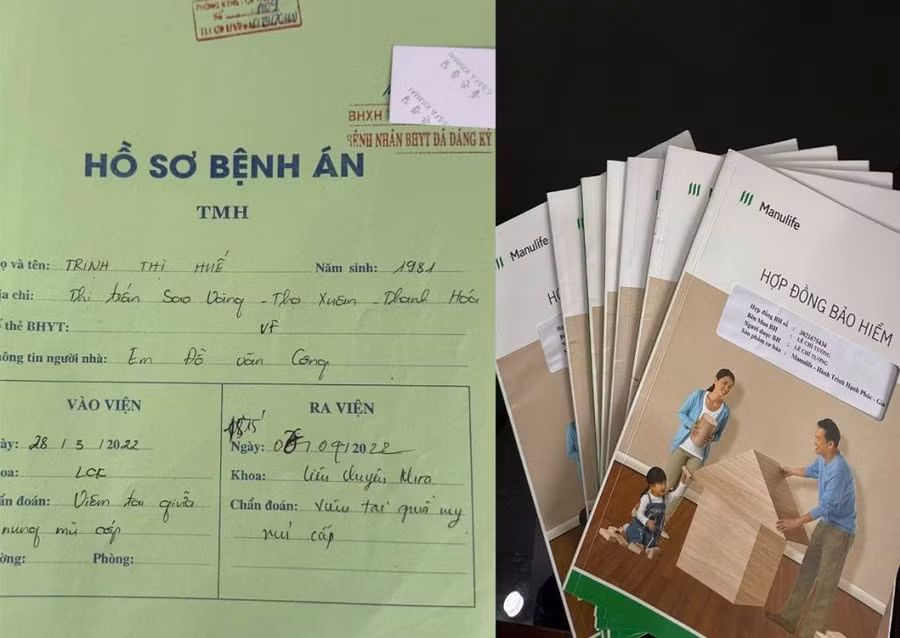 BHXH
BỆNH NHÂN BHYT ĐÃ ĐĂNG KÝ
HỒ SƠ BỆNH ÁN
TMH
ọ và tên: TRỊNH THỊ HUẾ Năm sinh: 1981
ịa chỉ: Thị trấn Sao Vàng - Thọ Xuân - Thanh Hóa
ố thẻ BHYT: VF
hông tin người nhà: Em Đỗ Văn Công
VÀO VIỆN
ày: 28 / 3 / 2022
oa: LCK
ẩn đoán: Viêm tai giữa
nung mủ cấp
ờng: Phòng:
RA VIỆN
Ngày: /04/2022
Khoa: Liên chuyên khoa
Chẩn đoán: Viêm tai giữa
mủ cấp
Manulife
Manulife
HỢP ĐỒNG BẢO HIỂM
Hợp đồng BH số : 2921675434
Bên Mua BH : LÊ CHÍ TƯỜNG
Người được BH : LÊ CHÍ TƯỜNG
Sản phẩm cơ bản : Manulife - Hành Trình Hạnh Phúc - Gia